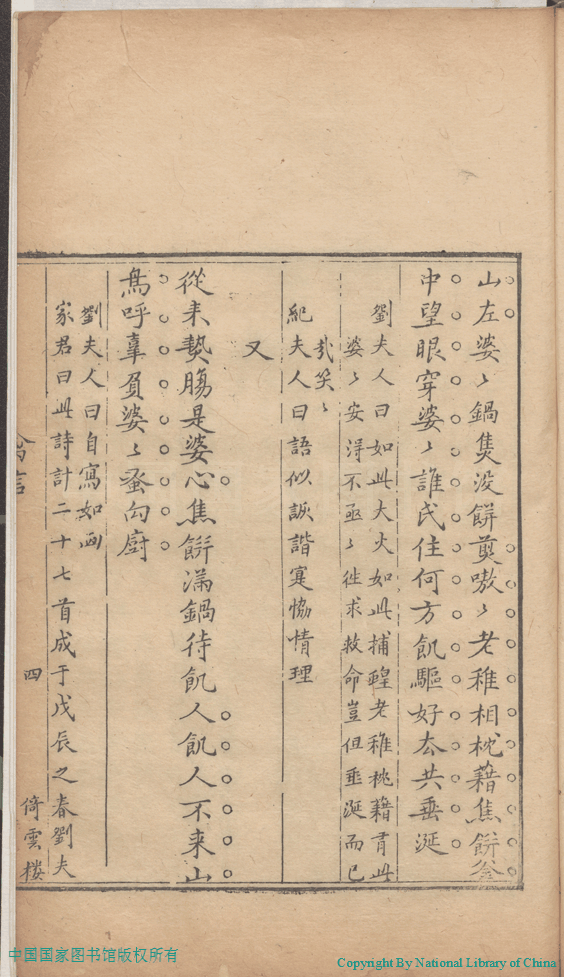 山左婆〻鍋煲没餅䓟嗷〻老稚相枕藉焦餅釜
中望眼穿婆〻誰氏住何方飢驅好去共垂涎
劉夫人曰如此大火如此捕蝗老稚枕藉胥此
婆〻安得不亟〻徃求救命豈但垂涎而已
哉笑〻
紀夫人曰語似詼諧寔恊情理
又
從来𤍠腸是婆心焦餅滿鍋待飢人飢人不来山
鳥呼辜負婆〻蚤向廚
劉夫人曰自寫如画
家君曰此詩計二十七首成于戊辰之春劉夫
四
倚雲樓
中国国家图书馆版权所有
Copyright By National Library of China